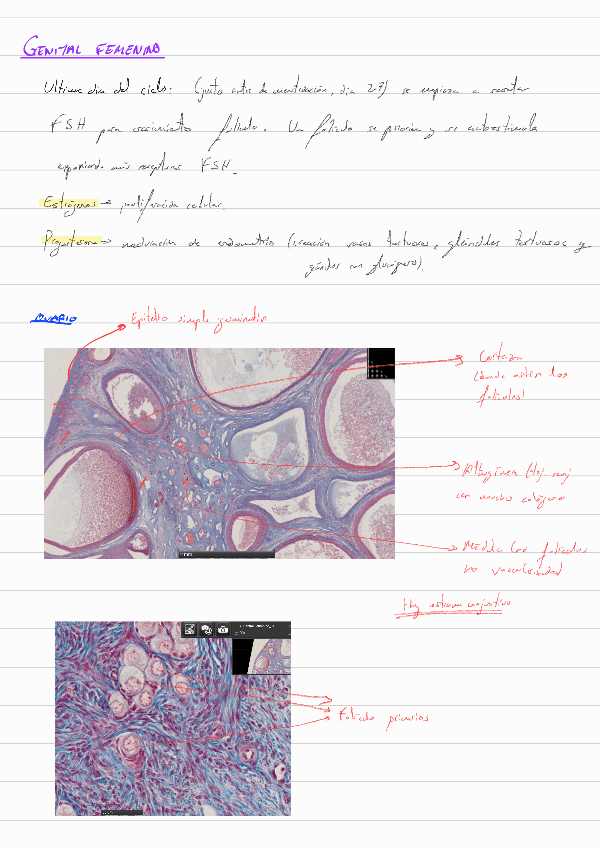 GENITAL FEMENINO
Ultimo dia del ciclo: (justo antes de menstruación, dia 27) se empieza a secretar
FSH para crecimiento folículo. Un folículo se prioriza y se autoestimula
expresando más receptores FSH.
Estrógenos → proliferación celular.
Progesterona → maduración de endometrio (creación vasos tortuosos, glándulas tortuosas y
glándulas con glucógeno).
OVARIO
Epitelio simple germinativo
Corteza
(donde están los
folículos)
Albugínea (tej. conj
con mucho colágeno
Médula (no folículos
vascularidad
Hay estroma conjuntivo
Folículo primarios